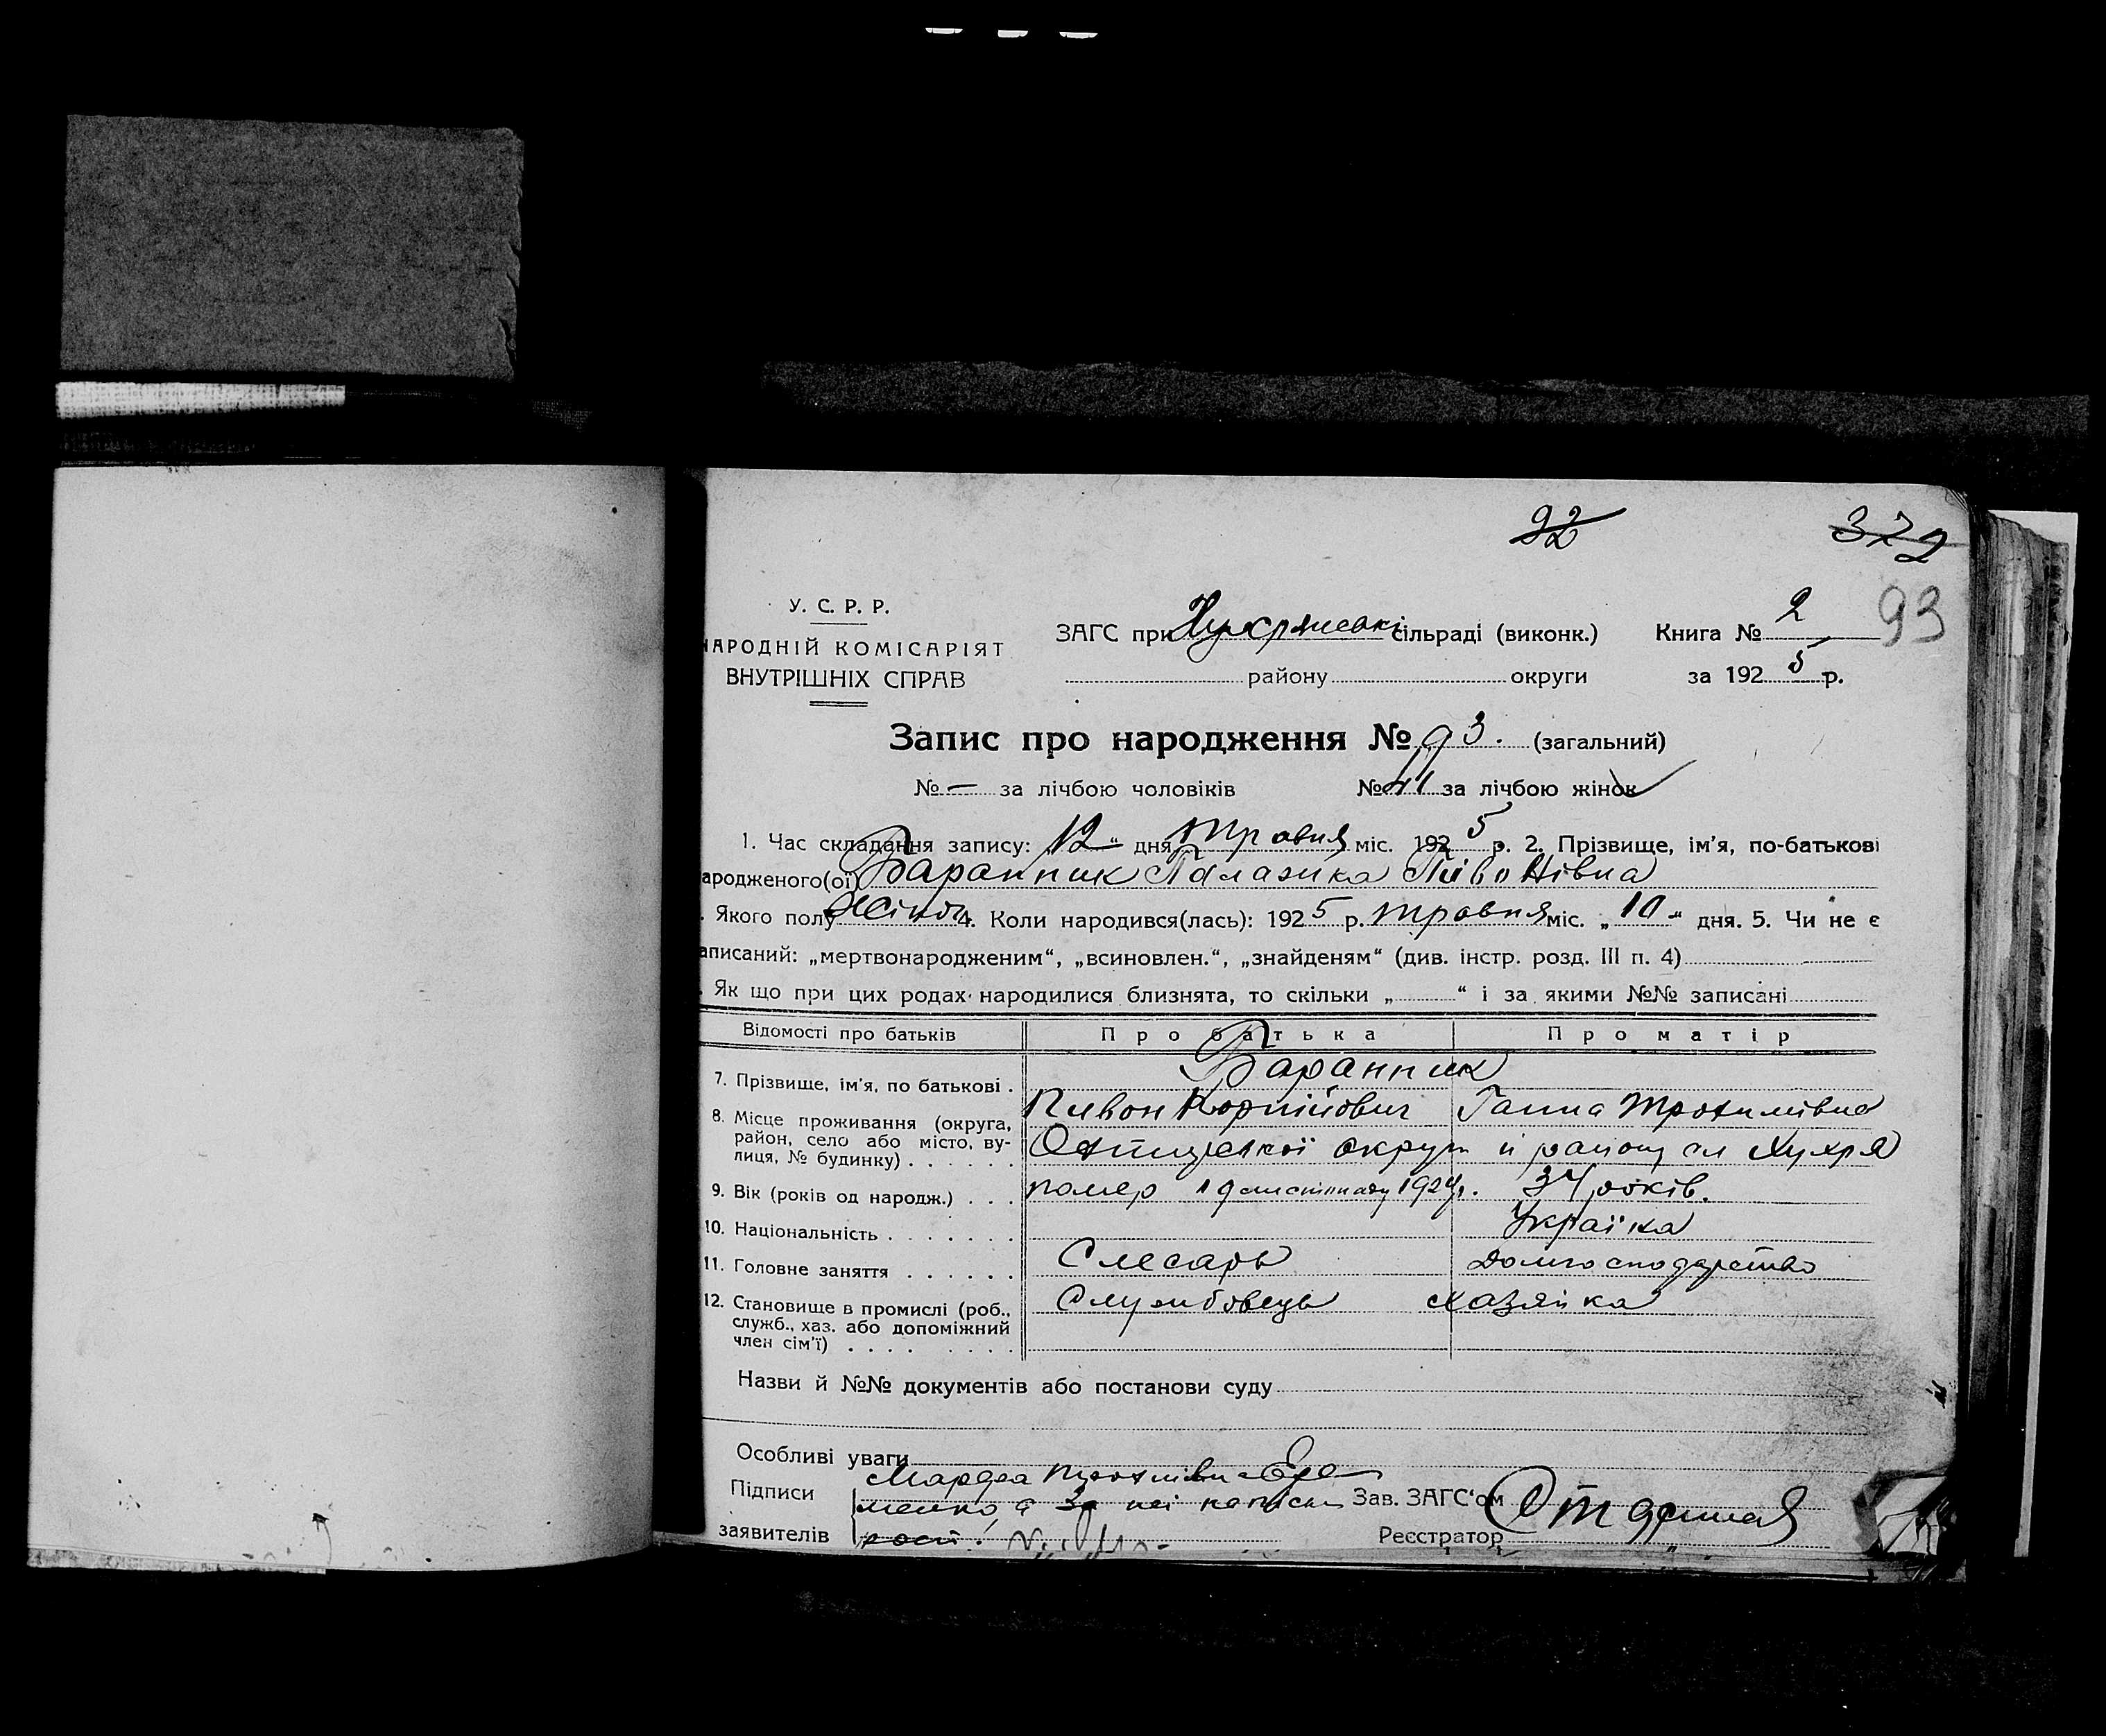 92 372
У. С. Р. Р.
НАРОДНІЙ КОМІСАРІЯТ
ВНУТРІШНІХ СПРАВ
ЗАГС при Хухрянські сільраді (виконк.) Книга № 2 93
району округи за 1925 р.
Запис про народження № 93. (загальний)
№ — за лічбою чоловіків № 41 за лічбою жінок
1. Час складання запису: „12“ дня травня міс. 1925 р. 2. Прізвище, ім'я, по-батькові
ародженого(ої) Баранник Палажка Пивонівна
. Якого полу жіноч. 4. Коли народився(лась): 1925 р. травня міс. „10“ дня. 5. Чи не є
аписаний: „мертвонародженим“, „всиновлен.“, „знайденям“ (див. інстр. розд. III п. 4)
. Як що при цих родах народилися близнята, то скільки „ “ і за якими №№ записані
Відомості про батьків Про батька Про матір
Баранник
7. Прізвище, ім'я, по батькові . Пивон Корнійович Ганна Трохимівна
8. Місце проживання (округа, район, село або місто, вулиця, № будинку) Охтирської округи й району сл Хухря
9. Вік (років од народж.) . . . помер 19 листопаду 1924 р. 34 років.
10. Національність . . . . . . . Украї ка
11. Головне заняття . . . . . . Слесарь Домгосподарство
12. Становище в промислі (роб., служб., хаз. або допоміжний член сім'ї) Службовець хазяйка
Назви й №№ документів або постанови суду
Особливі уваги
Підписи Марфа
а за неі Зав. ЗАГС'ом
заявителів Реєстратор